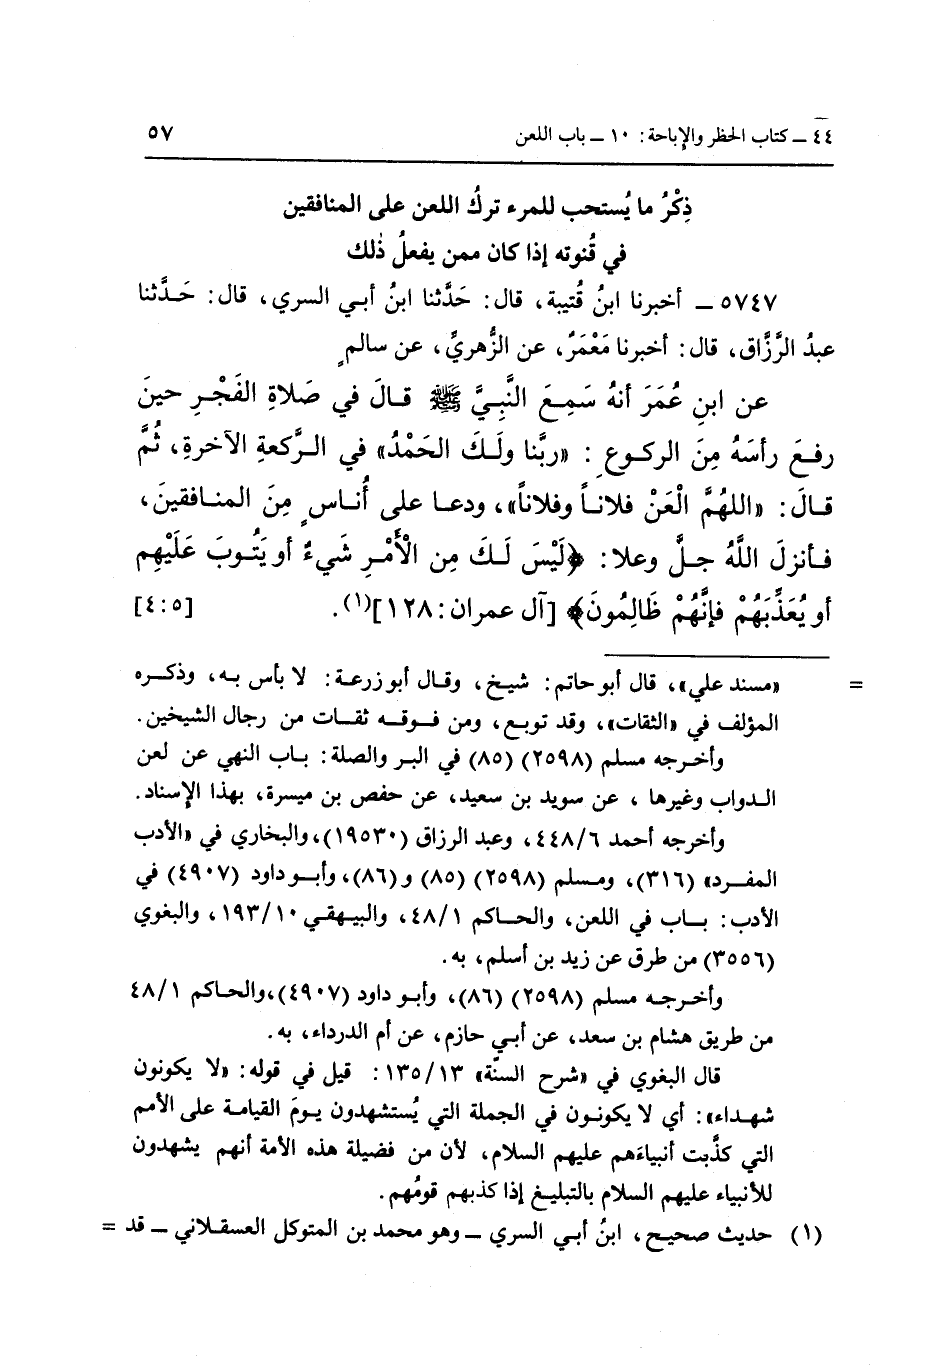 ٤٤ ــ كتاب الحظر والإباحة: ١٠ ــ باب اللعن ٥٧
ذِكْرُ ما يُستحب للمرء تركُ اللعن على المنافقين
في قُنوته إذا كان ممن يفعلُ ذٰلك
٥٧٤٧ ــ أخبرنا ابنُ قُتيبة، قال: حَدَّثنا ابنُ أبي السري، قال: حَدَّثنا
عبدُ الرَّزَّاق، قال: أخبرنا مَعْمَرٌ، عن الزُّهريِّ، عن سالمٍ
عن ابنِ عُمَرَ أنهُ سَمِعَ النَّبِيَّ ﷺ قالَ في صَلاةِ الفَجْرِ حينَ
رفعَ رأسَهُ مِنَ الركوعِ: «ربَّنا ولَكَ الحَمْدُ» في الرَّكعةِ الآخرةِ، ثُمَّ
قالَ: «اللهُمَّ الْعَنْ فلاناً وفلاناً»، ودعا على أُناسٍ مِنَ المنافقينَ،
فأنزلَ اللَّهُ جلَّ وعلا: ﴿لَيْسَ لَكَ مِن الْأَمْرِ شَيءٌ أو يَتُوبَ عَلَيْهِم
أو يُعَذِّبَهُمْ فإنَّهُمْ ظَالِمُونَ﴾ [آل عمران: ١٢٨](١). [٤:٥]
= «مسند علي»، قال أبو حاتم: شيخ، وقال أبو زرعة: لا بأس به، وذكره
المؤلف في «الثقات»، وقد توبع، ومن فوقه ثقات من رجال الشيخين.
وأخرجه مسلم (٢٥٩٨) (٨٥) في البر والصلة: باب النهي عن لعن
الدواب وغيرها، عن سويد بن سعيد، عن حفص بن ميسرة، بهذا الإسناد.
وأخرجه أحمد ٤٤٨/٦، وعبد الرزاق (١٩٥٣٠)، والبخاري في «الأدب
المفرد» (٣١٦)، ومسلم (٢٥٩٨) (٨٥) و(٨٦)، وأبو داود (٤٩٠٧) في
الأدب: باب في اللعن، والحاكم ٤٨/١، والبيهقي ١٩٣/١٠، والبغوي
(٣٥٥٦) من طرق عن زيد بن أسلم، به.
وأخرجه مسلم (٢٥٩٨) (٨٦)، وأبو داود (٤٩٠٧)، والحاكم ٤٨/١
من طريق هشام بن سعد، عن أبي حازم، عن أم الدرداء، به.
قال البغوي في «شرح السنّة» ١٣٥/١٣: قيل في قوله: «لا يكونون
شهداء»: أي لا يكونون في الجملة التي يُستشهدون يومَ القيامة على الأمم
التي كذَّبت أنبياءَهم عليهم السلام، لأن من فضيلة هذه الأمة أنهم يشهدون
للأنبياء عليهم السلام بالتبليغ إذا كذبهم قومُهم.
(١) حديث صحيح، ابنُ أبي السري ــ وهو محمد بن المتوكل العسقلاني ــ قد =